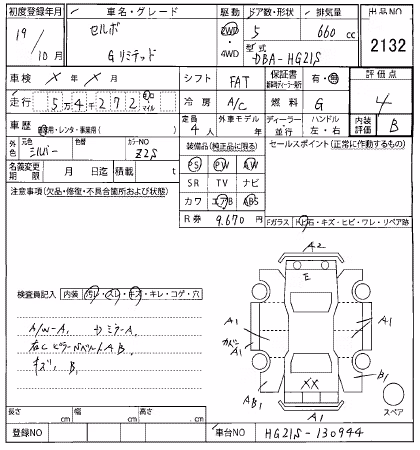 初度登録年月 車名・グレード 駆動 ドア数・形状 排気量 出品NO
19/10月 セルボ Gリミテッド 2WD・4WD 5 660cc 2132
型式 DBA-HG21S
車検 X年X月 シフト FAT 保証書 有・無 評価点 4
走行 5万4千272 km マイル 冷房 A/C 燃料 G
車歴 自家用・レンタ・事業用( ) 定員 4人 外車モデル 年 ディーラー・並行 ハンドル 左・右 内装評価 B
外色 元色 シルバー 色替 カラーNO Z2S 装備品(純正品に限る) セールスポイント(正常に作動するもの)
名義変更期限 月 日迄 積載 t
PS PW AW
SR TV ナビ
カワ エアB ABS
注意事項(欠品・修復・不具合箇所および状態) R券 9,670円 Fガラス トビ石・キズ・ヒビ・ワレ・リペア跡
A2
E
検査員記入 内装 汚レ・スレ・キズ・キレ・コゲ・穴
A/W-A1
ミラーA1
右Cピラー
AB1
キズ B1
A1
A1
A1
B1
AB1
XX
A1
スペア
長さ cm 幅 cm 高さ cm
登録NO 車台NO HG21S-130944